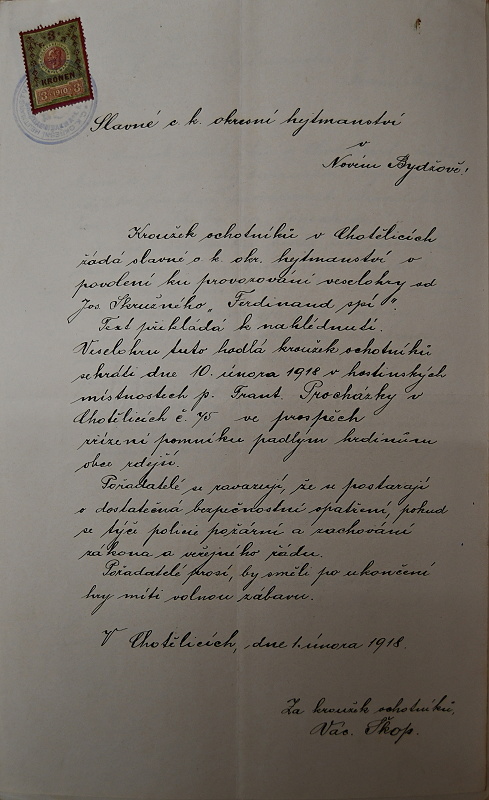 3
KRONEN
3 1910 3
Slavné c. k. okresní hejtmanství
v
Novém Bydžově!
Kroužek ochotníků v Chotělicích
žádá slavné c k. okr. hejtmanství o
povolení ku provozování veselohry od
Jos. Skružného „Ferdinand spí“.
Text překládá k nahlédnutí.
Veselohru tuto hodlá kroužek ochotníků
sehráti dne 10. února 1918 v hostinských
místnostech p. Frant. Procházky v
Chotělicích č. 75 ve prospěch
zřízení pomníku padlým hrdinům
obce zdejší.
Pořadatelé se zavazují, že se postarají
o dostatečná bezpečnostní opatření, pokud
se týče policie požární a zachování
zákona a veřejného řádu.
Pořadatelé prosí, by směli po ukončení
hry míti volnou zábavu.
V Chotělicích, dne 1. února 1918.
Za kroužek ochotníků,
Vác. Škop.